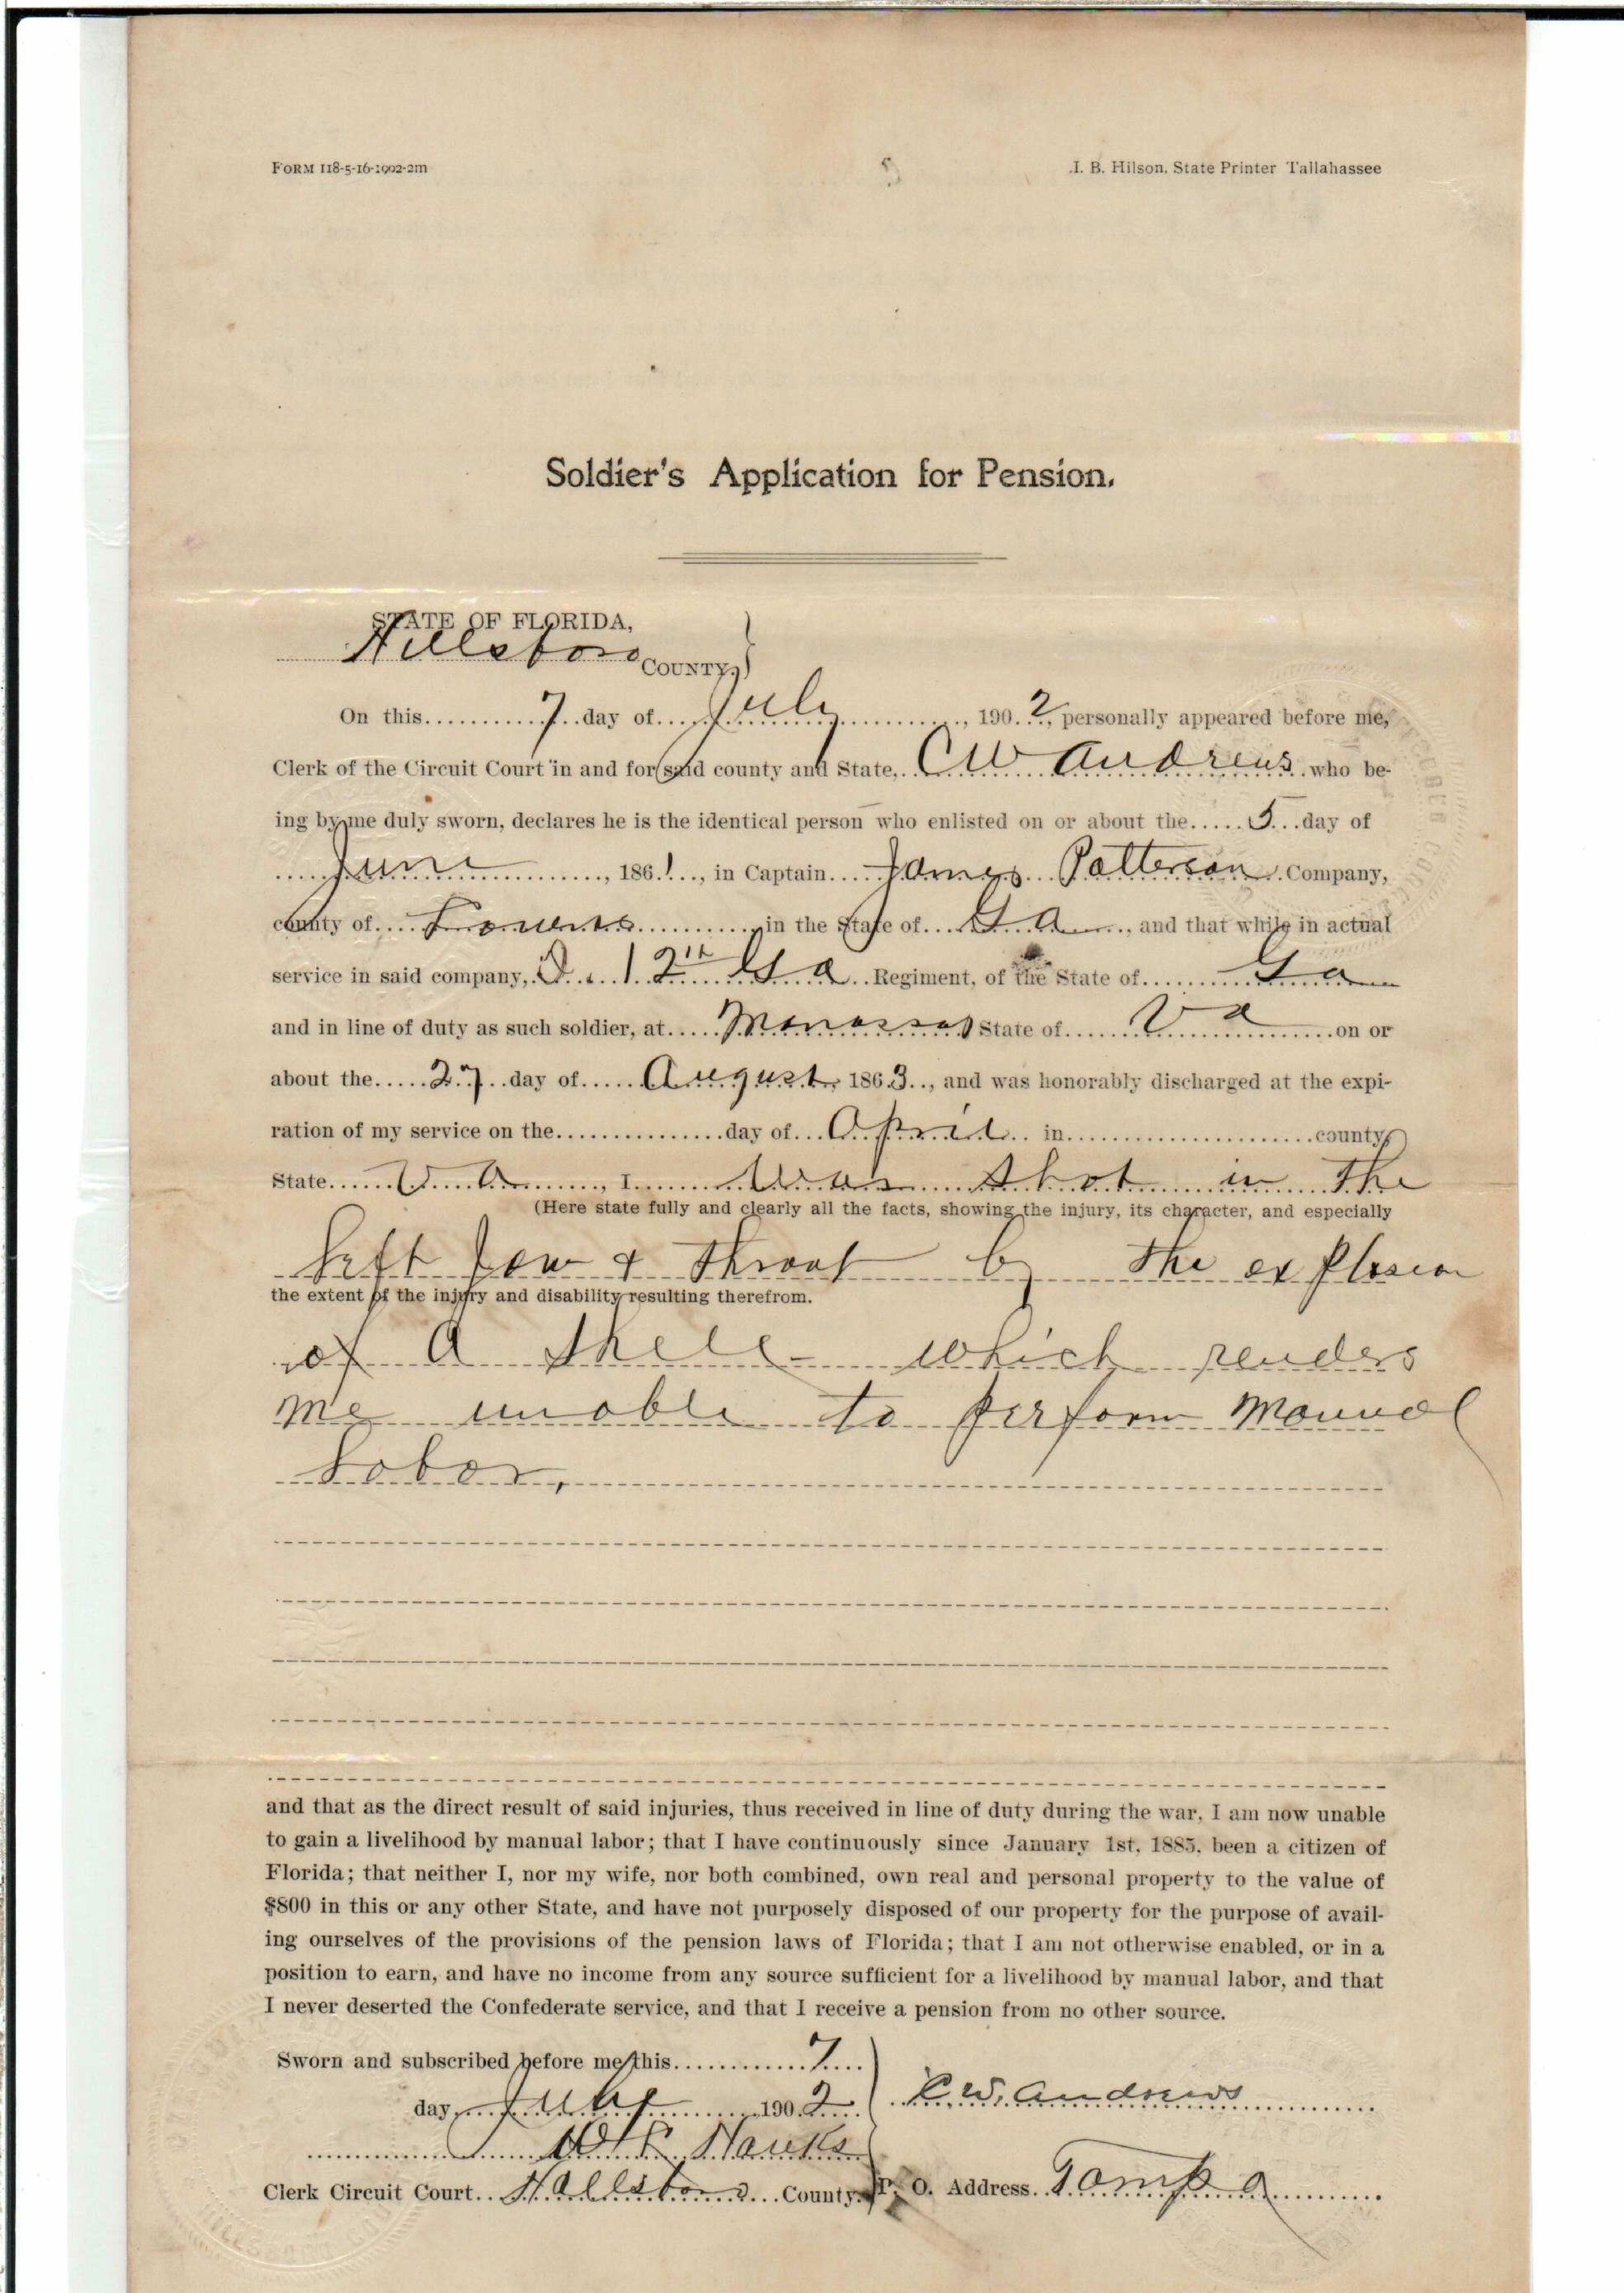 FORM 118-5-16-1902-2m
I. B. Hilson, State Printer Tallahassee
Soldier's Application for Pension.
STATE OF FLORIDA,
Hillsboro COUNTY,
On this 7 day of July, 1902, personally appeared before me,
Clerk of the Circuit Court in and for said county and State, C W Andrews who be-
ing by me duly sworn, declares he is the identical person who enlisted on or about the 5 day of
June, 1861, in Captain James Patterson Company,
county of in the State of Ga, and that while in actual
service in said company, D. 12th Ga Regiment, of the State of Ga
and in line of duty as such soldier, at Manassas State of Va on or
about the 27 day of August, 1863, and was honorably discharged at the expi-
ration of my service on the day of April in county,
State Va, I was shot in the
(Here state fully and clearly all the facts, showing the injury, its character, and especially
Left Jaw & throat by the explosion
the extent of the injury and disability resulting therefrom.
of a shell which renders
me unable to perform manual
Labor,
and that as the direct result of said injuries, thus received in line of duty during the war, I am now unable
to gain a livelihood by manual labor; that I have continuously since January 1st, 1885, been a citizen of
Florida; that neither I, nor my wife, nor both combined, own real and personal property to the value of
$800 in this or any other State, and have not purposely disposed of our property for the purpose of avail-
ing ourselves of the provisions of the pension laws of Florida; that I am not otherwise enabled, or in a
position to earn, and have no income from any source sufficient for a livelihood by manual labor, and that
I never deserted the Confederate service, and that I receive a pension from no other source.
Sworn and subscribed before me this 7
day July 1902 C. W. Andrews
Hanks
Clerk Circuit Court Hillsboro County. P. O. Address Tampa